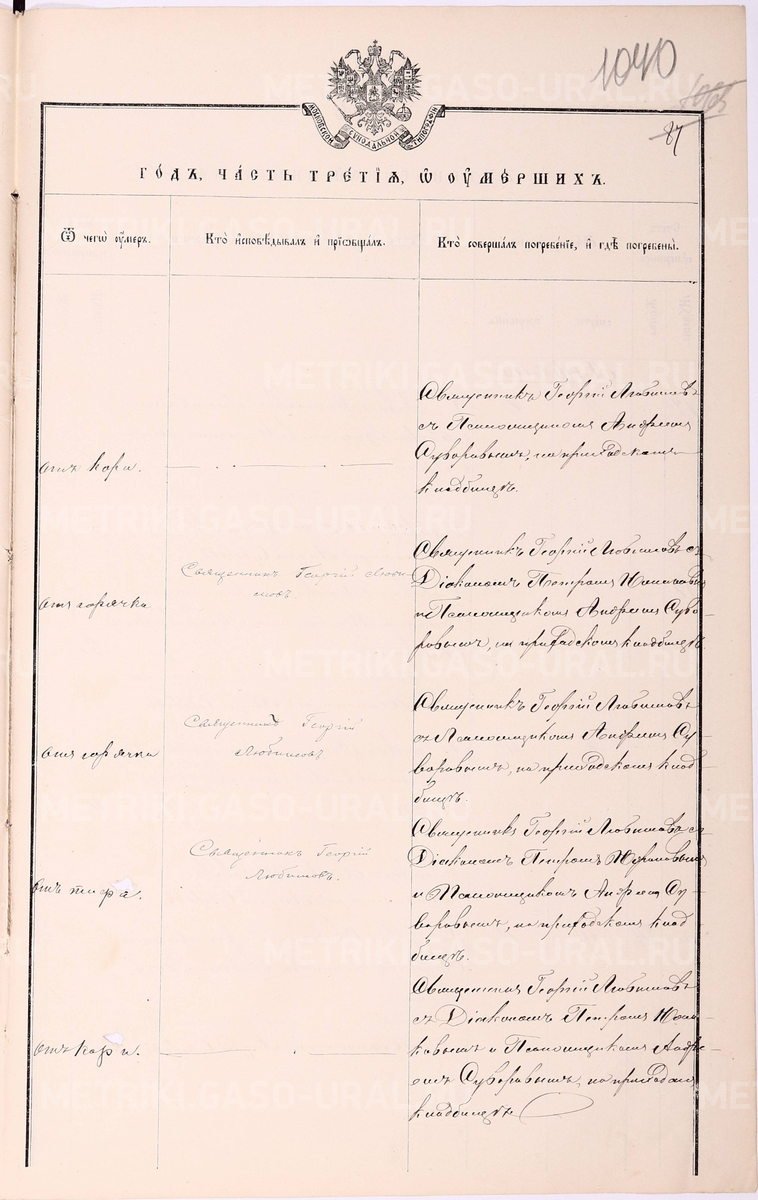 1040
87
МОСКОВСКОЙ СѴНОДАЛЬНОЙ ТИПОГРАФІИ
ГОДЪ, ЧАСТЬ ТРЕТІѦ, Ѿ ОУМЕРШИХЪ.
Ѿ чегѡ оумеръ.
Кто исповѣдывалъ и пріѡбщалъ.
Кто совершалъ погребеніе, и гдѣ погребены.
отъ кори.
Священникъ Георгій Любимовъ
съ Псаломщикомъ Андреемъ
Суворовымъ, на приходскомъ
кладбищѣ.
отъ горячки
Священникъ Георгій Люби-
мовъ
Священникъ Георгій Любимовъ съ
Діакономъ Петромъ
и Псаломщикомъ Андреемъ Суво-
ровымъ, на приходскомъ кладбищѣ
отъ горячки
Священникъ Георгій
Любимовъ
Священникъ Георгій Любимовъ
съ Псаломщикомъ Андреемъ Су-
воровымъ, на приходскомъ клад
бищѣ.
отъ тифа.
Священникъ Георгій
Любимовъ.
Священникъ Георгій Любимовъ съ
Діакономъ Петромъ
и Псаломщикомъ Андреемъ Су-
воровымъ, на приходскомъ клад
бищѣ.
отъ кори.
Священникъ Георгій Любимовъ
съ Діакономъ Петромъ
и Псаломщикомъ Андре-
емъ Суворовымъ, на приходском
кладбищѣ
METRIKI.GASO-URAL.RU